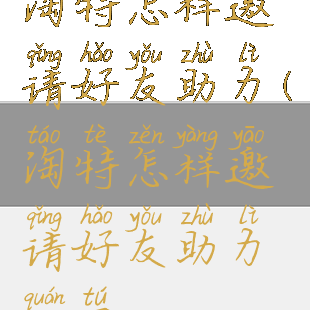 淘特怎样邀
qǐng hǎo yǒu zhù lì
请好友助力(
táo tè zěn yàng yāo
淘特怎样邀
qǐng hǎo yǒu zhù lì
请好友助力
quán tú